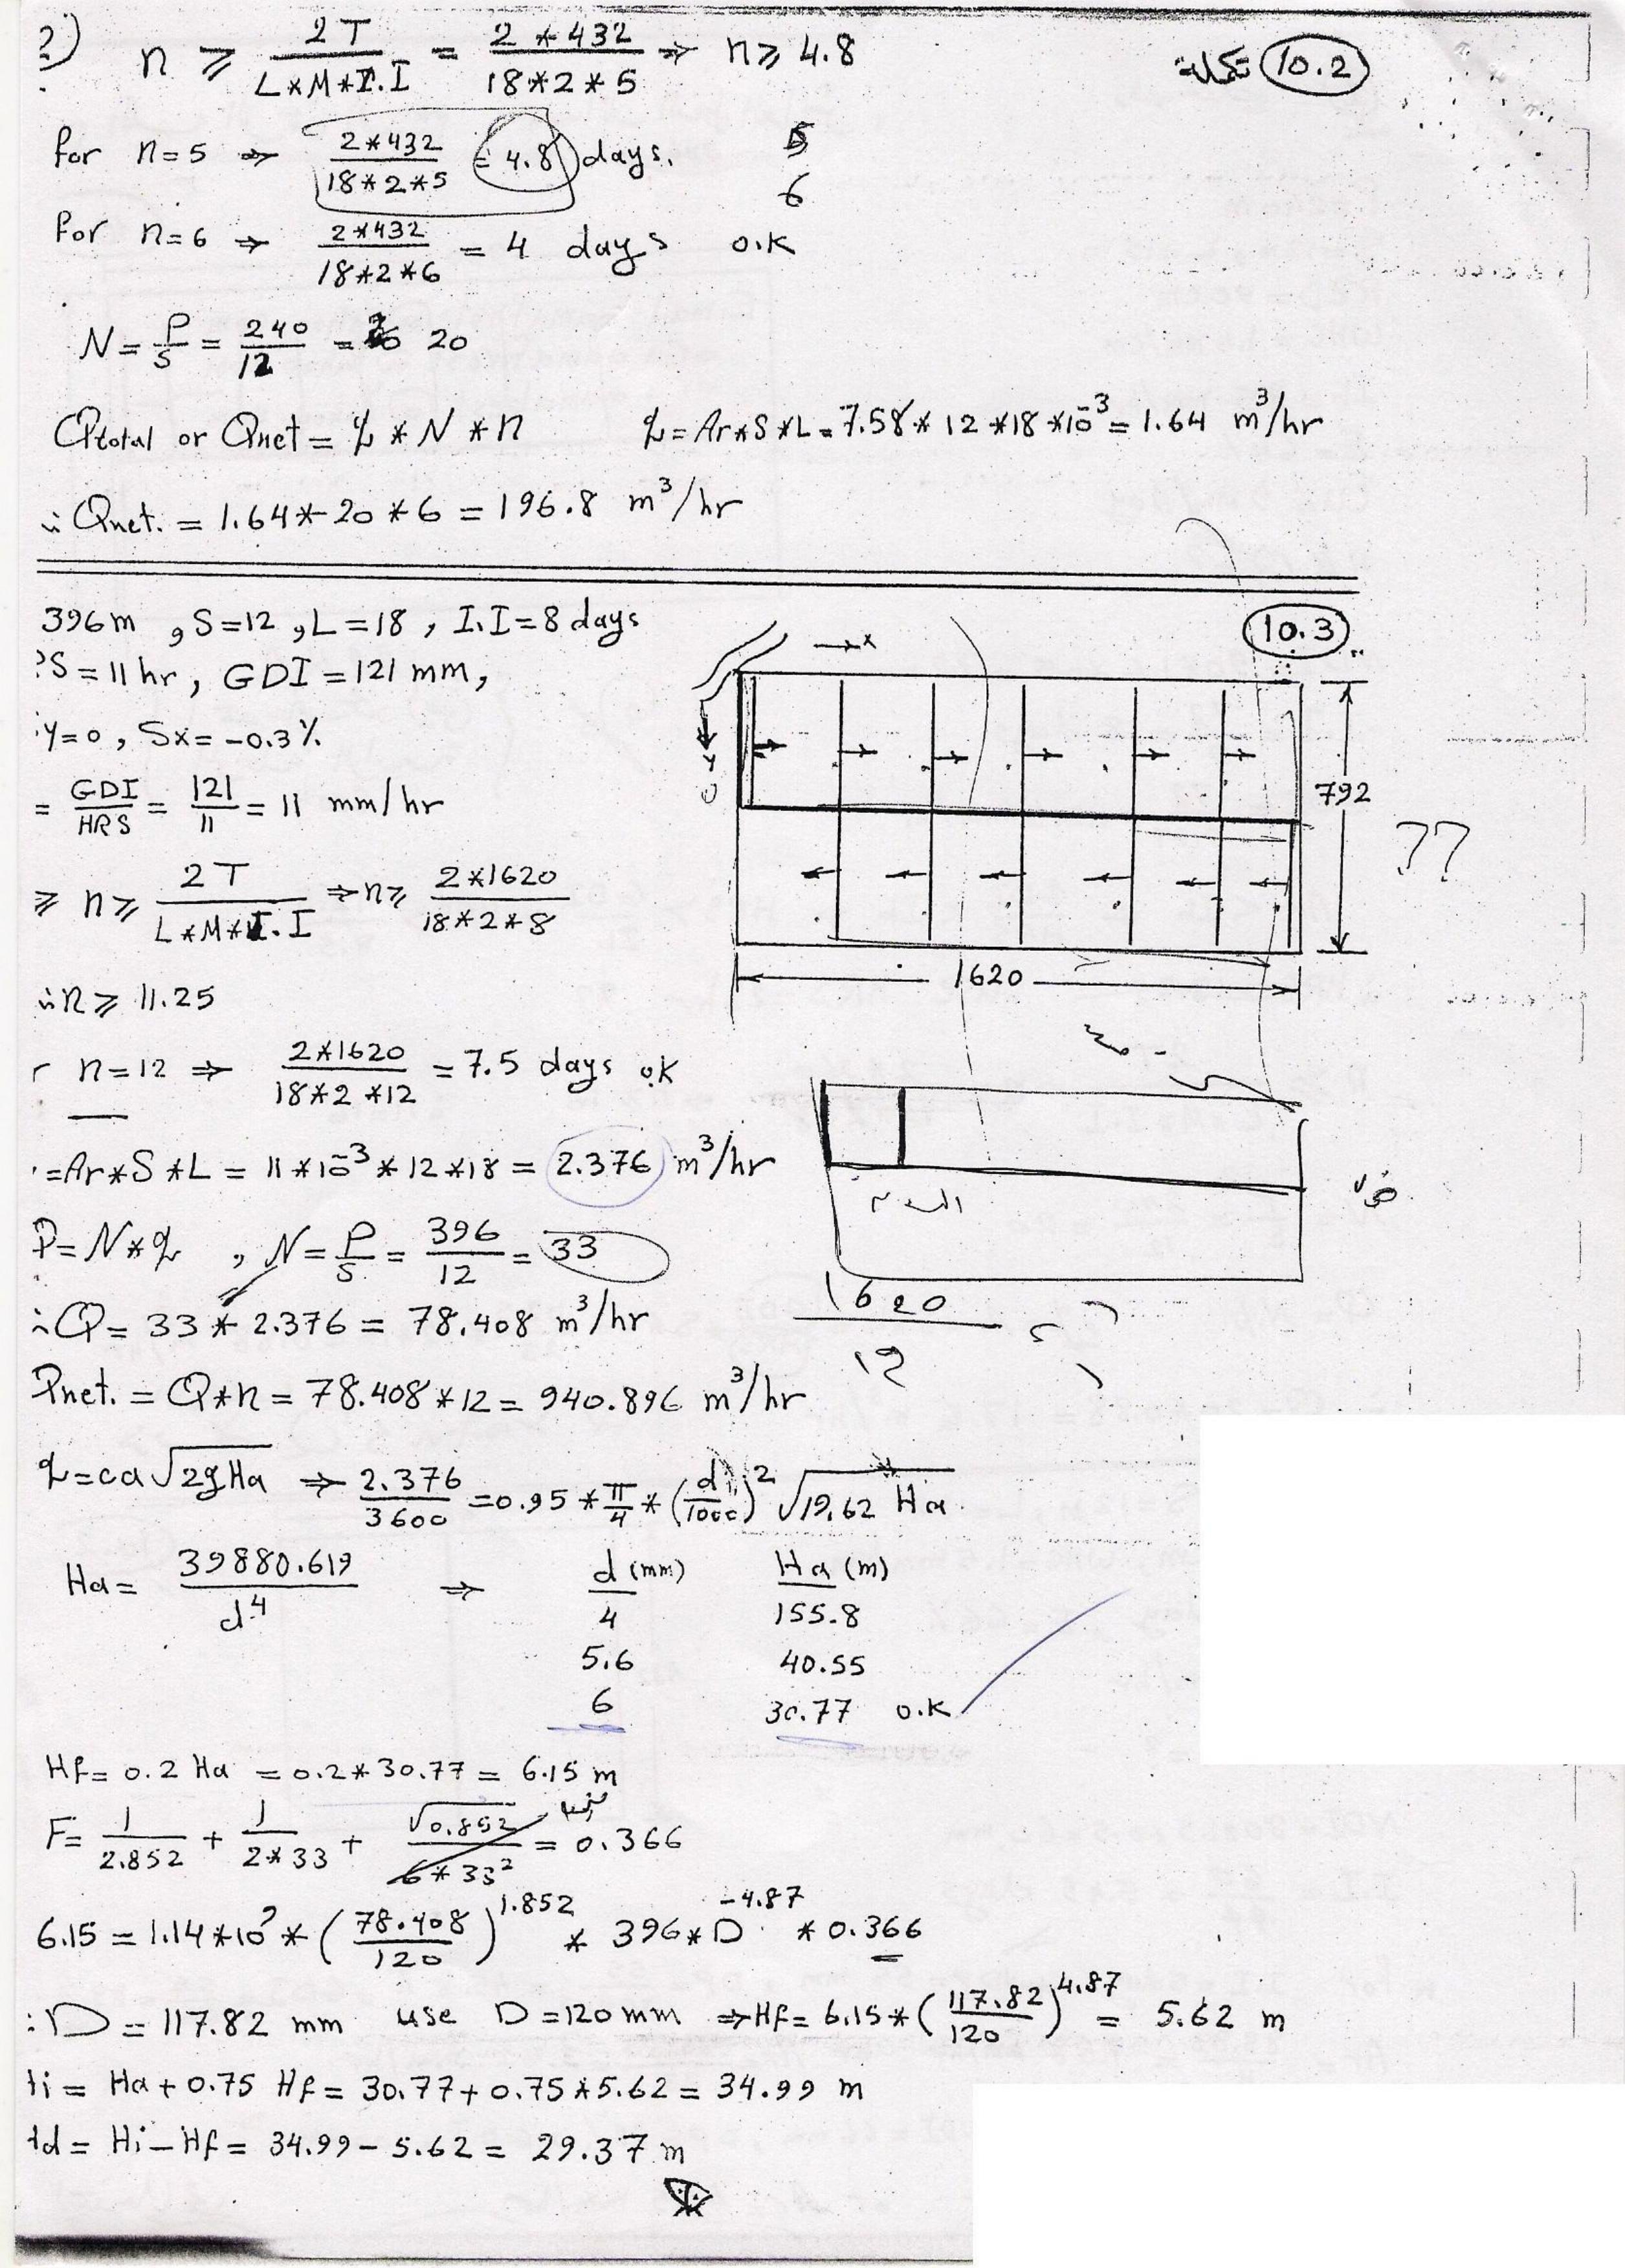 ?) n ≥ 2T / L*M*I.I = 2*432 / 18*2*5 ⇒ n ≥ 4.8
10.2 تكملة
for n=5 ⇒ 2*432 / 18*2*5 = 4.8 days.
5
6
for n=6 ⇒ 2*432 / 18*2*6 = 4 days o.k
N = P/S = 240/12 = 20
Qtotal or Qnet = q * N * n
q = Ar*S*L = 7.58 * 12 * 18 * 10^-3 = 1.64 m³/hr
∴ Qnet. = 1.64 * 20 * 6 = 196.8 m³/hr
10.3
396m , S=12 , L=18 , I.I=8 days
S = 11 hr , GDI = 121 mm,
y=0 , Sx = -0.3%
= GDI / HRS = 121 / 11 = 11 mm/hr
≥ n ≥ 2T / L*M*I.I ⇒ n ≥ 2*1620 / 18*2*8
∴ n ≥ 11.25
r n=12 ⇒ 2*1620 / 18*2*12 = 7.5 days o.k
= Ar*S*L = 11*10^-3 * 12 * 18 = 2.376 m³/hr
Q = N*q , N = P/S = 396/12 = 33
∴ Q = 33 * 2.376 = 78.408 m³/hr
Qnet. = Q*n = 78.408 * 12 = 940.896 m³/hr
→x
y
792
??
1620
1620
12
q = ca √2gHa ⇒ 2.376 / 3600 = 0.95 * π/4 * (d/1000)² √19.62 Ha
Ha = 39880.619 / d^4 ⇒
d (mm) Ha (m)
4 155.8
5.6 40.55
6 30.77 o.k
Hf = 0.2 Ha = 0.2 * 30.77 = 6.15 m
F = 1/2.852 + 1/2*33 + √0.852 / 6*33² = 0.366
6.15 = 1.14*10^9 * (78.408/120)^1.852 * 396 * D^-4.87 * 0.366
∴ D = 117.82 mm use D = 120 mm ⇒ Hf = 6.15 * (117.82/120)^4.87 = 5.62 m
Hi = Ha + 0.75 Hf = 30.77 + 0.75*5.62 = 34.99 m
Hd = Hi - Hf = 34.99 - 5.62 = 29.37 m